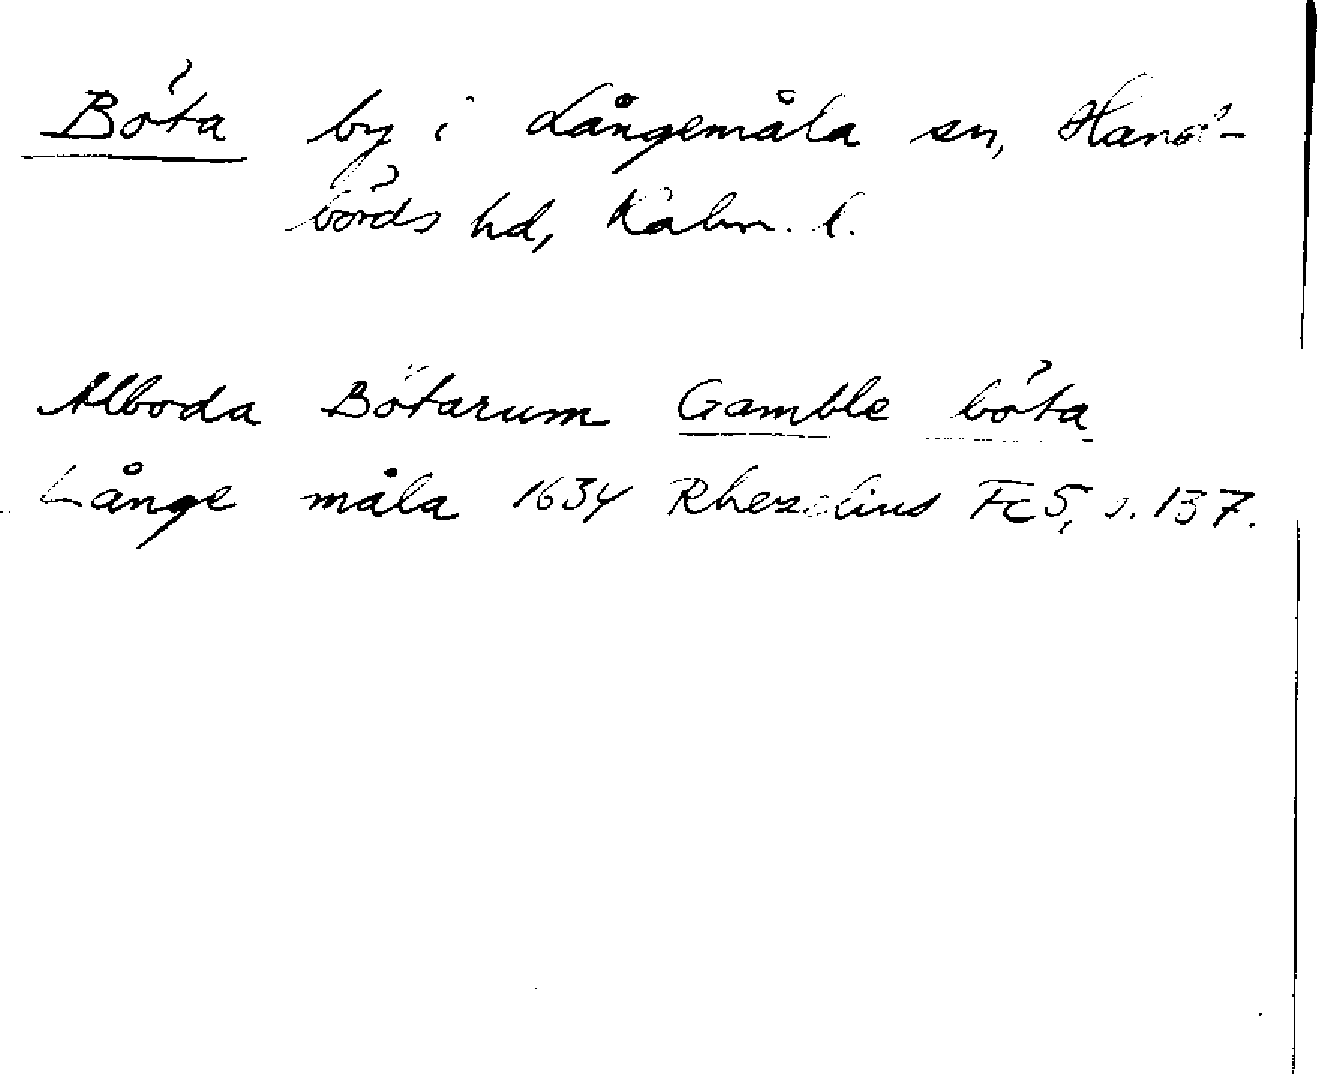 Böta by i Långemåla sn, Hand-
börds hd, Kalm. l.
Alboda Bötarum Gamble böta
Långe måla 1634 Rhezelius Fc5, s. 137.